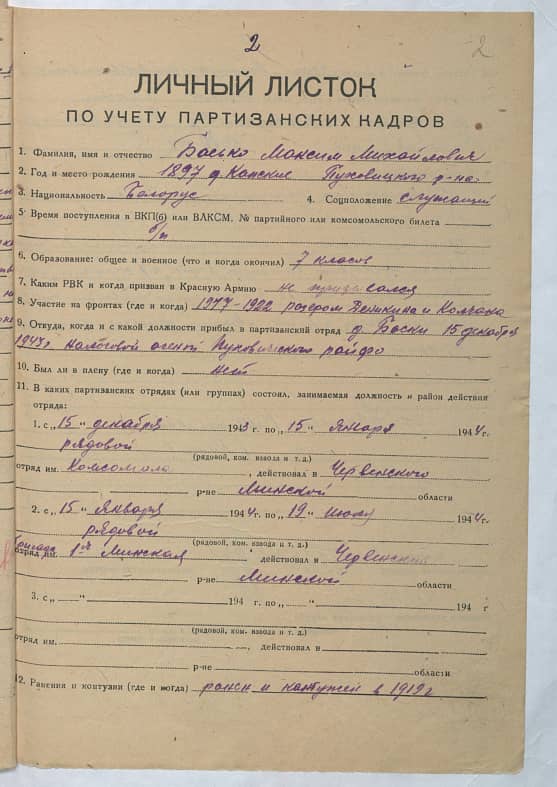 2
2
ЛИЧНЫЙ ЛИСТОК
ПО УЧЕТУ ПАРТИЗАНСКИХ КАДРОВ
1. Фамилия, имя и отчество Босько Максим Михайлович
2. Год и место рождения 1897 д Пуховицкого р-на
3. Национальность Белорус 4. Соцположение служащий
5. Время поступления в ВКП(б) или ВЛКСМ, № партийного или комсомольского билета
б/п
6. Образование: общее и военное (что и когда окончил) 7 класов
7. Каким РВК и когда призван в Красную Армию не призывался
8. Участие на фронтах (где и когда) 1922 Деникина и Колчака
9. Откуда, когда и с какой должности прибыл в партизанский отряд д. 15 декабря
1943г налоговой Пуховичского райфо
10. Был ли в плену (где и когда) нет
11. В каких партизанских отрядах (или группах) состоял, занимаемая должность и район действия
отряда:
1. с „15„ декабря 1943 г. по „15„ января 1944 г.
рядовой
(рядовой, ком. взвода и т. д.)
отряд им. Комсомола, действовал в Червенского
р-не Минской области
2. с „15„ января 1944 г. по „19„ июля 1944 г.
рядовой
(рядовой, ком. взвода и т. д.)
бригада
отряд им. 1ая Минская действовал в
р-не Минской области
3. с „ „ 194 г. по „ „ 194 г
(рядовой, ком. взвода и т. д.)
отряд им. , действовал в
р-не области
12. Ранения и контузии (где и когда) ранен и контужен в 1919г